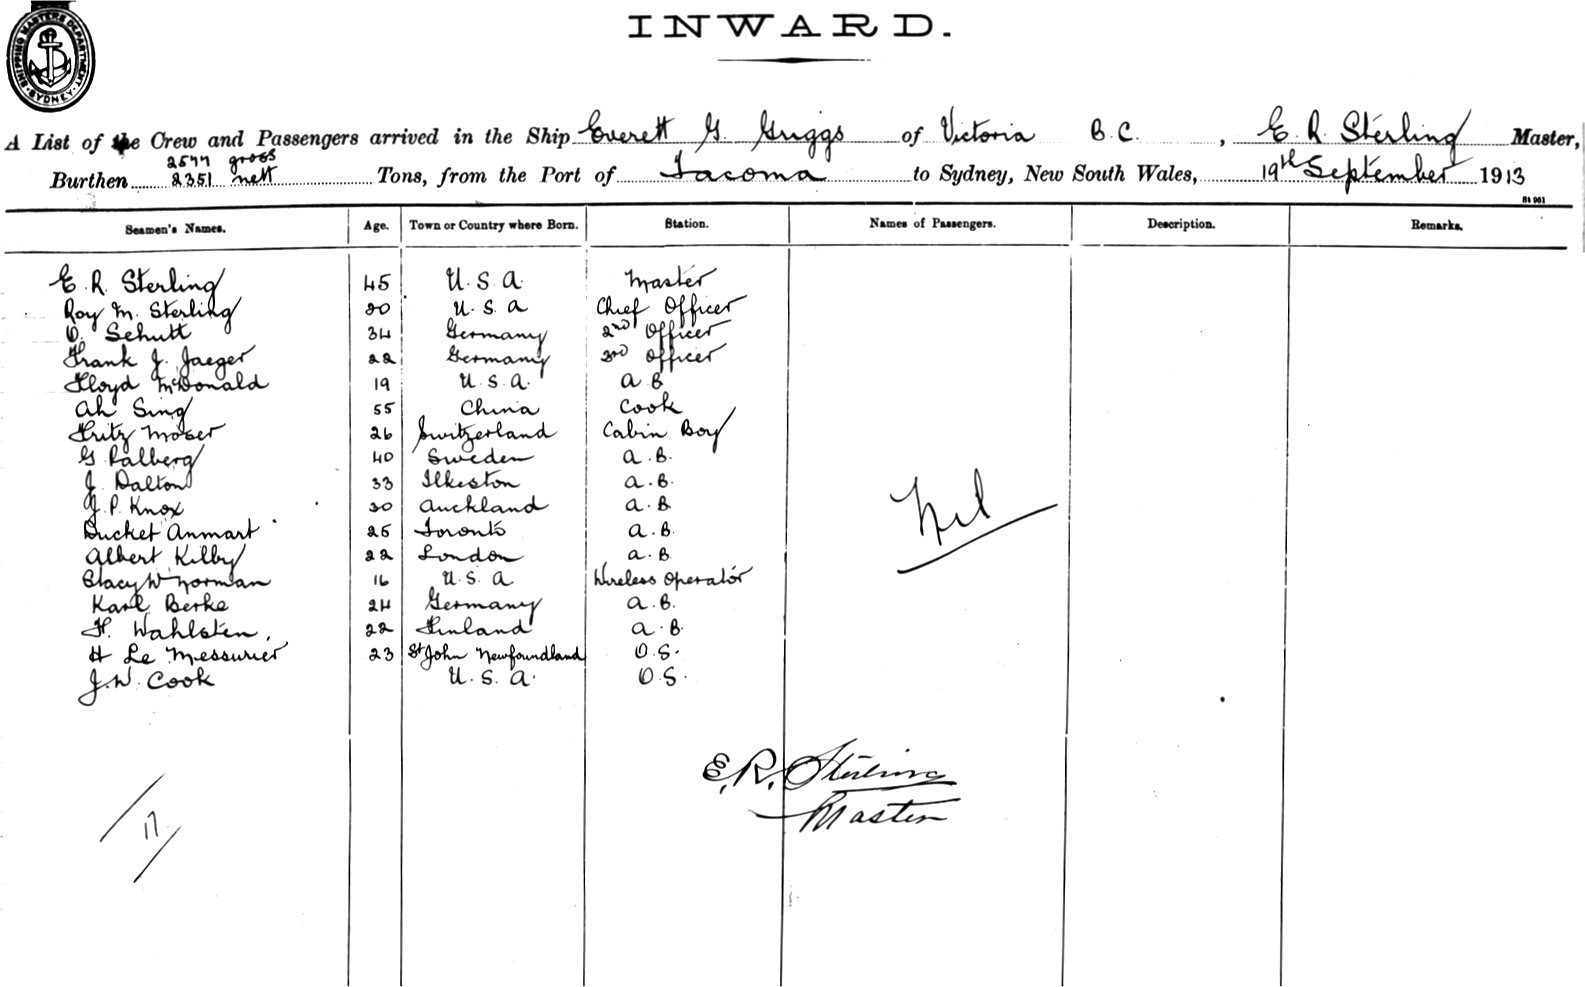 SHIPPING MASTERS DEPARTMENT. SYDNEY.
INWARD.
A List of the Crew and Passengers arrived in the Ship Everett G. Griggs of Victoria B.C., E. R. Sterling Master,
2577 gross
Burthen 2351 nett Tons, from the Port of Tacoma to Sydney, New South Wales, 19th September 1913
Seamen's Names. Age. Town or Country where Born. Station. Names of Passengers. Description. Remarks.
E. R. Sterling 45 U.S.A. Master
Roy M. Sterling 20 U.S.A Chief Officer
O. Schutt 34 Germany 2nd Officer
Frank J. Jaeger 22 Germany 3rd Officer
Floyd McDonald 19 U.S.A. A.B
Ah Sing 55 China Cook
Fritz Moser 26 Switzerland Cabin Boy
G Palberg 40 Sweden A.B.
J. Dalton 33 Ilkeston A.B.
J. P. Knox 30 Auckland A.B.
Ducket Anmart 25 Toronto A.B.
Albert Kilby 22 London A.B
Stacy W Norman 16 U.S.A Wireless Operator
Karl Berke 24 Germany A.B.
H. Wahlsten. 22 Finland A.B.
H Le Messurier 23 St John Newfoundland O.S.
J. W. Cook U.S.A. O.S.
Nil
E. R. Sterling
Master
17